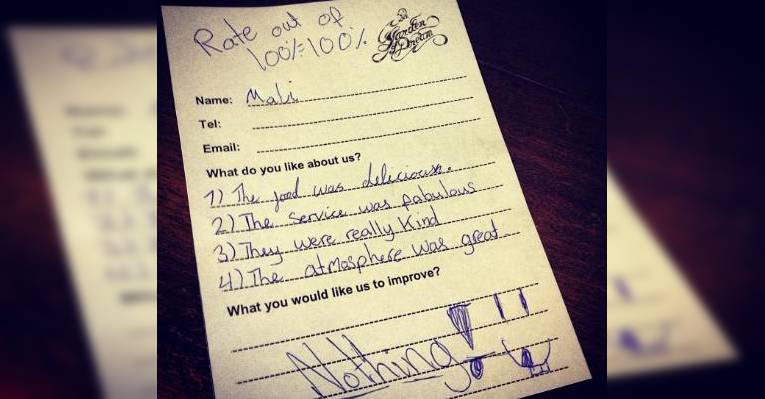 Rate out of
100%=100%
Garden
of Dream
Name: Mali
Tel:
Email:
What do you like about us?
1) The food was delicious.
2) The service was fabulous
3) They were really Kind
4) The atmosphere was great
What you would like us to improve?
Nothing!